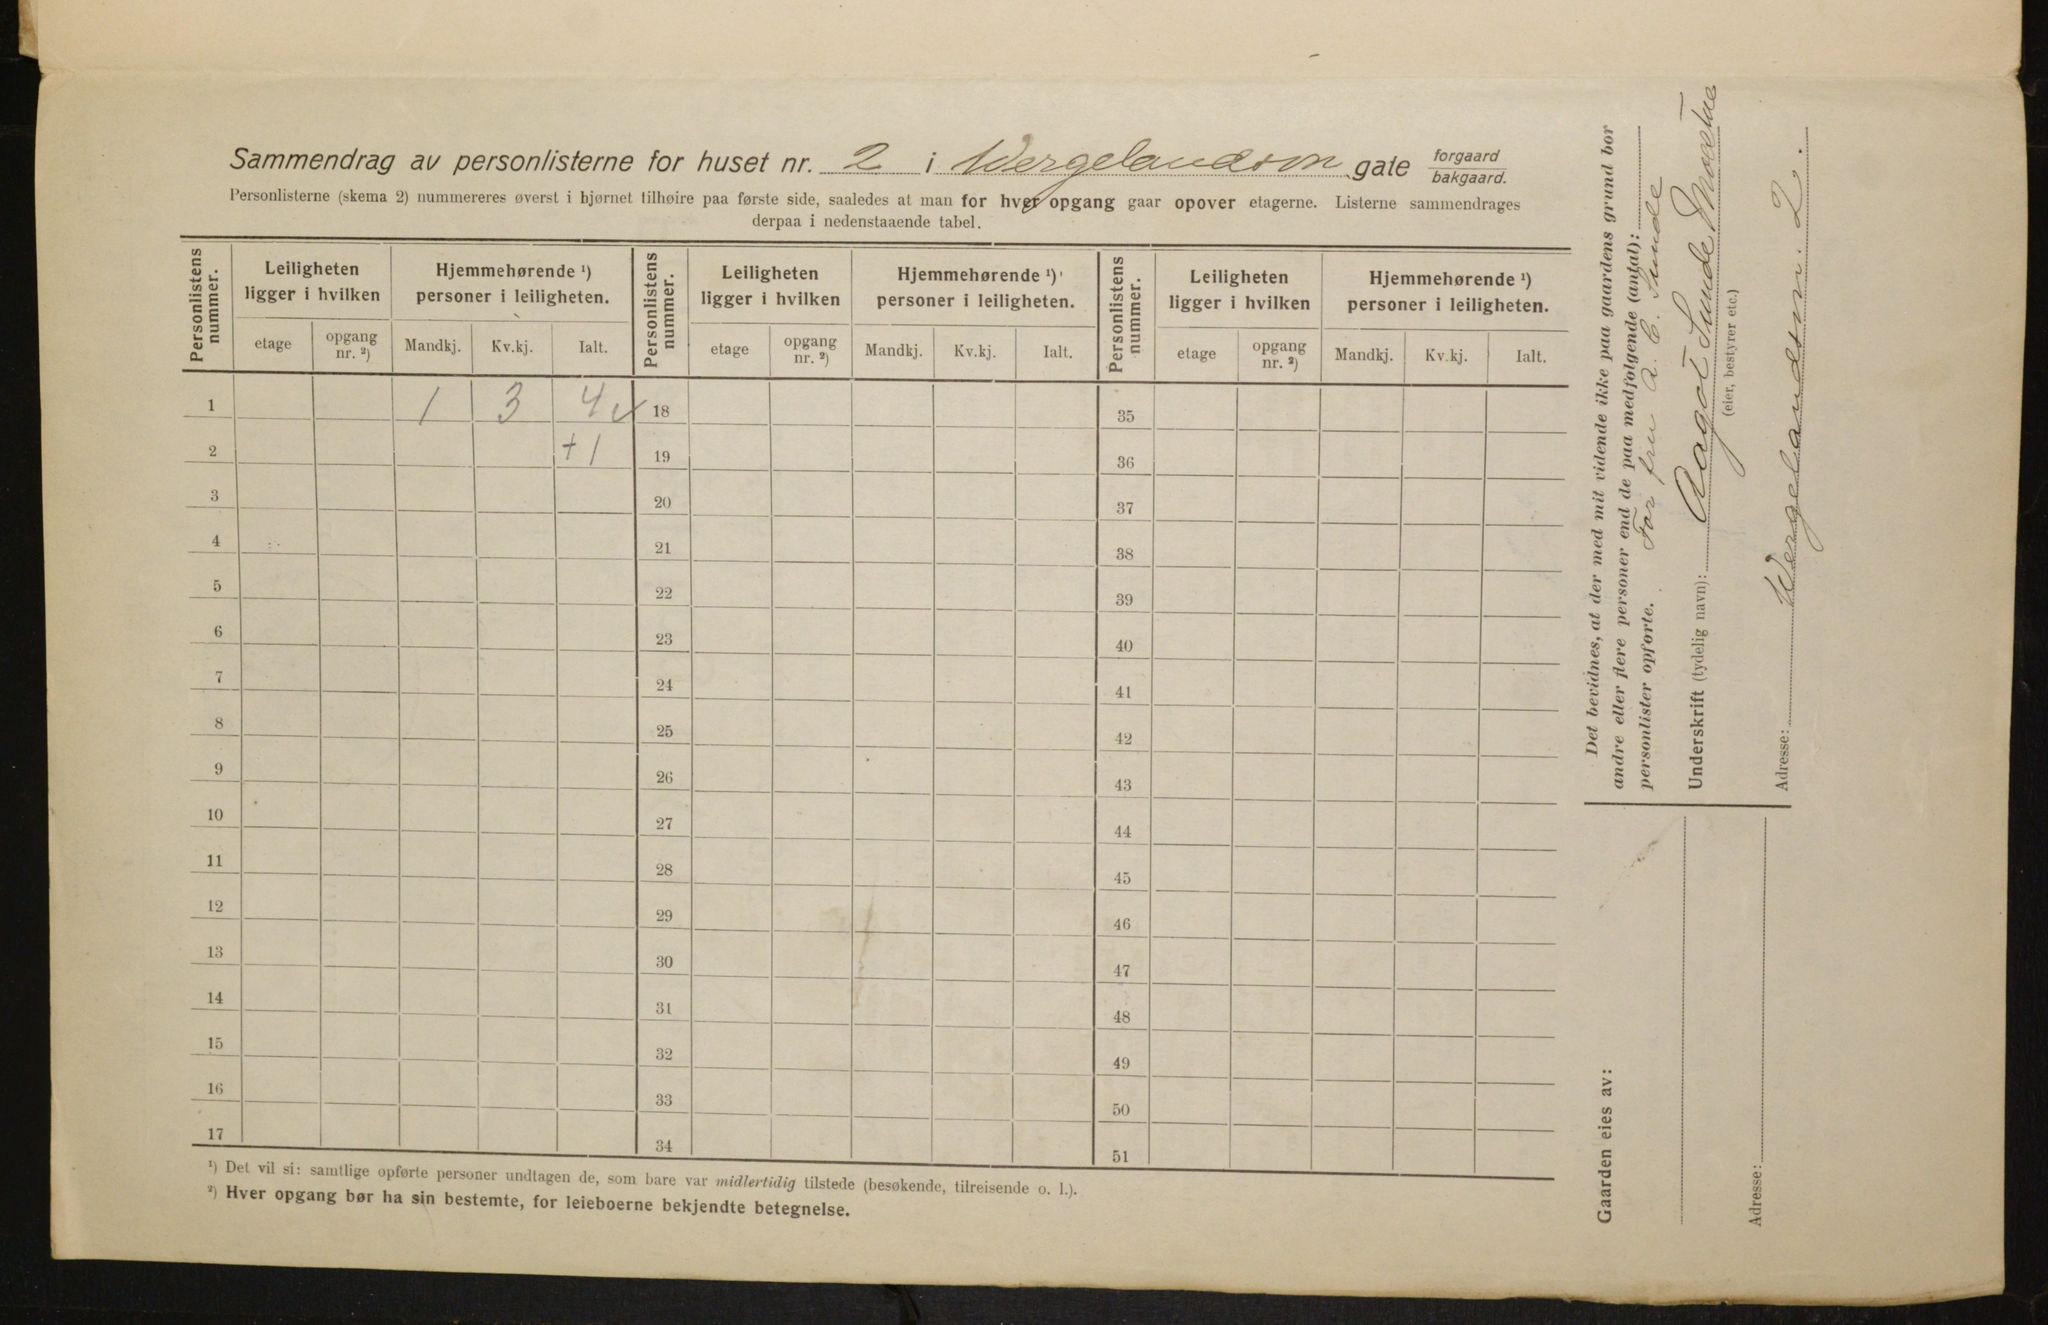 Sammendrag av personlisterne for huset nr. 2 i Wergelandsvn gate forgaard bakgaard.
Personlisterne (skema 2) nummereres øverst i hjørnet tilhøire paa første side, saaledes at man for hver opgang gaar opover etagerne. Listerne sammendrages
derpaa i nedenstaaende tabel.
Personlistens nummer. Leiligheten ligger i hvilken Hjemmehørende ¹) personer i leiligheten. Personlistens nummer. Leiligheten ligger i hvilken Hjemmehørende ¹) personer i leiligheten. Personlistens nummer. Leiligheten ligger i hvilken Hjemmehørende ¹) personer i leiligheten.
etage opgang nr. ²) Mandkj. Kv.kj. Ialt. etage opgang nr. ²) Mandkj. Kv.kj. Ialt. etage opgang nr. ²) Mandkj. Kv.kj. Ialt.
1 1 3 4 ✓ 18 35
2 +1 19 36
3 20 37
4 21 38
5 22 39
6 23 40
7 24 41
8 25 42
9 26 43
10 27 44
11 28 45
12 29 46
13 30 47
14 31 48
15 32 49
16 33 50
17 34 51
¹) Det vil si: samtlige opførte personer undtagen de, som bare var midlertidig tilstede (besøkende, tilreisende o. l.).
²) Hver opgang bør ha sin bestemte, for leieboerne bekjendte betegnelse.
Det bevidnes, at der med mit vidende ikke paa gaardens grund bor
andre eller flere personer end de paa medfølgende (antal):
personlister opførte. For fru A. C. Sunde
Underskrift (tydelig navn): Aagot Sunde
(eier, bestyrer etc.)
Adresse: Wergelandsvn. 2.
Gaarden eies av:
Adresse: